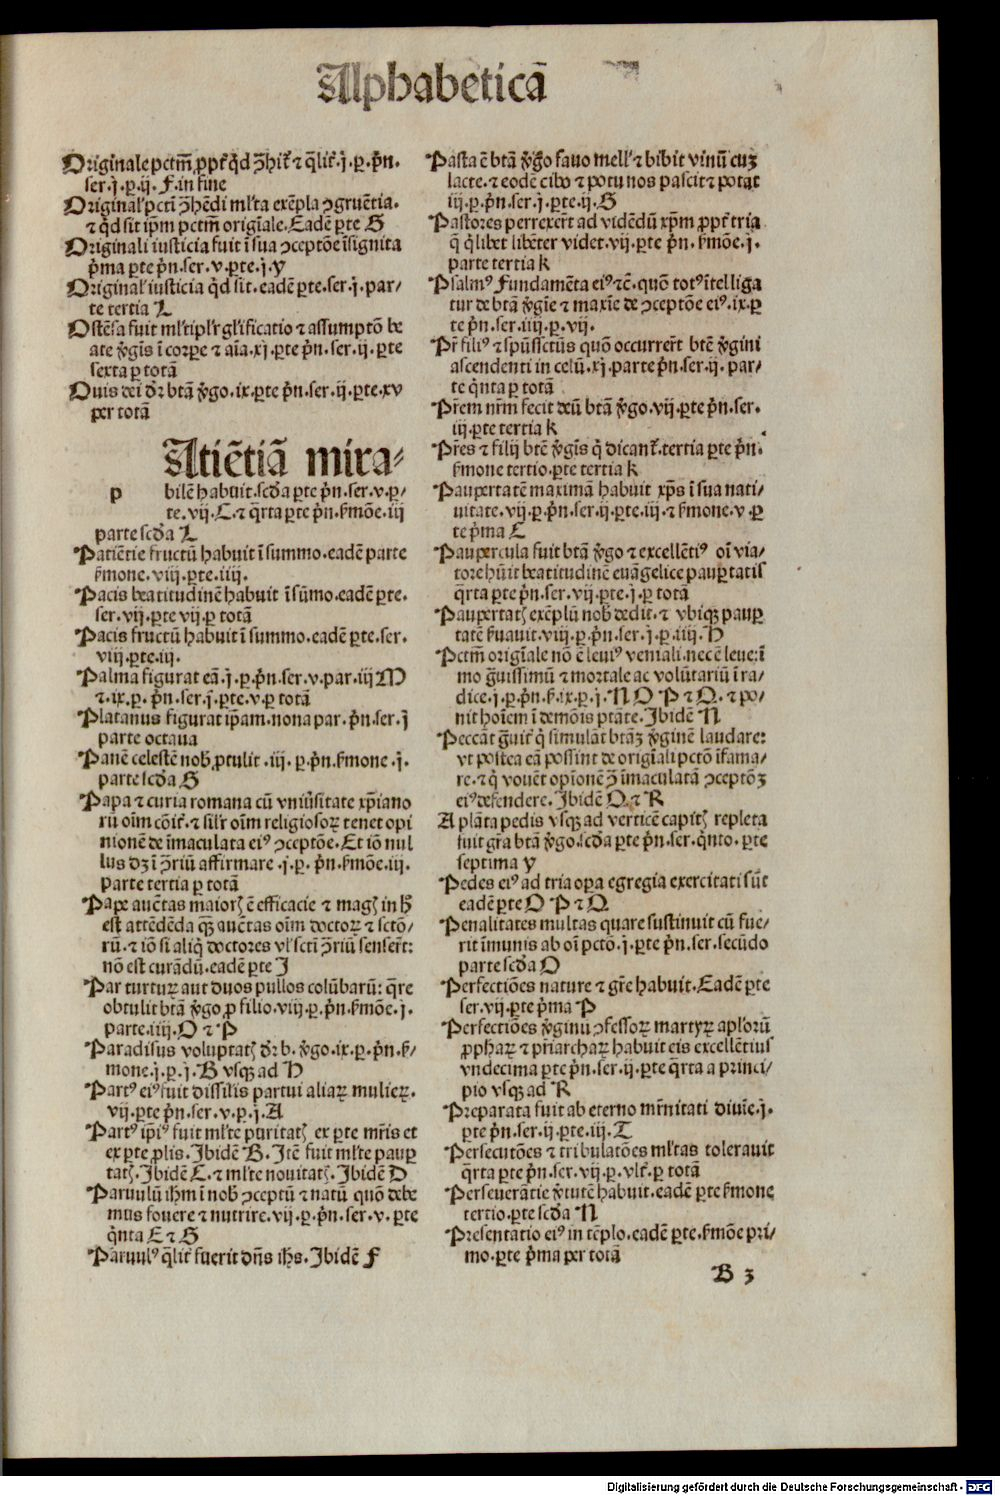 Alphabeticā
Originale pctm̄ ꝓpt̄ qd ꝯhit̄ ⁊ q̄lit̄.j.p.pn̄.
ser.j.p.ij. F. in fine
Original' pctī ꝯhēdi ml'ta exēpla ꝯgruētia.
⁊ qd sit ip̄m pctm̄ origīale. Eadē ꝑte G
Originali iusticia fuit ī sua ꝯceptōe īsignita
p̄ma ꝑte pn̄.ser.v.ꝑte.j.y
Original' iusticia qd sit. eadē ꝑte.ser.j.par-
te tertia L
Ostēsa fuit ml'tipl'r gl'ificatio ⁊ assumptō be
ate v̄gīs ī corꝑe ⁊ aīa.xj.ꝑte pn̄.ser.ij.ꝑte
sexta ꝑ totā
Ouis dei dr̄ btā v̄go.ix.ꝑte pn̄.ser.ij.ꝑte.xv
per totā
Atiētiā mira-
p bilē habuit.scd̄a ꝑte pn̄.ser.v.ꝑ-
te.vij.C.⁊ q̄rta ꝑte pn̄.ẜmōe.iij
parte scd̄a L
Patiētie fructū habuit ī summo.eadē parte
ẜmone.viij.ꝑte.iiij.
Pacis beatitudinē habuit ī sūmo.eadē ꝑte.
ser.vij.ꝑte vij.ꝑ totā
Pacis fructū habuit ī summo.eadē ꝑte.ser.
viij.ꝑte.iij.
Palma figurat eā.j.p.pn̄.ser.v.par.iij M
⁊.ix.p. pn̄.ser.j.ꝑte.v.ꝑ totā
Platanus figurat ip̄am.nona par.pn̄.ser.j
parte octaua
Panē celestē nob̄ ꝓtulit.iij.p.pn̄.ẜmone.j.
parte scd̄a G
Papa ⁊ curia romana cū vniūsitate xp̄iano
rū oīm cōit̄.⁊ sil'r oīm religiosoꝝ tenet opi
nionē de īmaculata eiꝰ ꝯceptōe. Et iō nul
lus dꝫ ī ꝯriū affirmare.j.p. pn̄.ẜmōe.iij.
parte tertia ꝑ totā
Pape auētas maiorꝭ ē efficacie ⁊ magꝭ in h̄
est attēdēda qꝫ auētas oīm doctoꝝ ⁊ sctō-
rū.⁊ iō si aliq̄ doctores vl' sctī ꝯriū senser̄t:
nō est curādū.eadē ꝑte J
Par turtuꝝ aut duos pullos colūbarū: q̄re
obtulit btā v̄go ꝓ filio.viij.p.pn̄.ẜmōe.j.
parte.iiij.O ⁊ P
Paradisus voluptatꝭ dr̄ b. v̄go.ix.p.pn̄.ẜ-
mone.j.p.j.B vsqꝫ ad H
Partꝰ eiꝰ fuit dissilis partui aliaꝝ mulieꝝ.
vij.ꝑte pn̄.ser.v.p.j.A
Partꝰ ip̄iꝰ fuit ml'te puritatꝭ ex ꝑte mr̄is et
ex ꝑte ꝓlis. Jbidē B. Jtē fuit ml'te pauꝑ
tatꝭ. Jbidē C.⁊ ml'te nouitatꝭ. Jbidē D
Paruulū ihm̄ ī nob̄ ꝯceptū ⁊ natū quō debe
mus fouere ⁊ nutrire.vij.p.pn̄.ser.v.ꝑte
q̄nta E ⁊ G
Paruulꝰ q̄lit̄ fuerit dn̄s ihs̄. Jbidē F
Pasta ē btā v̄go fauo mell' ⁊ bibit vinū cuꝫ
lacte.⁊ eodē cibo ⁊ potu nos pascit ⁊ potat
iij.p.pn̄.ser.j.ꝑte.ij.G
Pastores perrexer̄t ad vidēdū xp̄m ꝓpt̄ tria
q̄ q̄libet libēter videt.vij.ꝑte pn̄.ẜmōe.j.
parte tertia k
Psalmꝰ Fundamēta eiꝰ ⁊c̄.quō totꝰ ītelliga
tur de btā v̄gīe ⁊ maxīe de ꝯceptōe eiꝰ.ix.ꝑ
te pn̄.ser.iiij.p.vij.
Pr̄ filiꝰ ⁊ spūssctūs quō occurrer̄t btē v̄gini
ascendenti in celū.xj.parte pn̄.ser.ij.par-
te q̄nta ꝑ totā
Pr̄em nr̄m fecit deū btā v̄go.vij.ꝑte pn̄.ser.
iij.ꝑte tertia k
Pr̄es ⁊ filij btē v̄gīs q̄ dicant̄.tertia ꝑte pn̄.
ẜmone tertio.ꝑte tertia k
Paupertatē maximā habuit xp̄s ī sua nati-
uitate.vij.p.pn̄.ser.ij.ꝑte.iij.⁊ ẜmone.v.ꝑ
te p̄ma C
Paupercula fuit btā v̄go ⁊ excellētiꝰ oī via-
tore hūit beatitudinē euāgelice pauꝑtatis
q̄rta ꝑte pn̄.ser.vij.ꝑte.j.ꝑ totā
Paupertatꝭ exēplū nob̄ dedit.⁊ vbiqꝫ pauꝑ
tatē ẜuauit.viij.p.pn̄.ser.j.p.iiij.H
Pctm̄ origīale nō ē leuiꝰ veniali.nec ē leue:ī
mo gūissimū ⁊ mortale ac volūtariū ī ra-
dice.j.p.pn̄.ẜ.ix.p.j.N O P ⁊ Q.⁊ po-
nit hoīem ī demōis ptāte. Jbidē N
Peccāt gūit̄ q̄ simulāt btāꝫ v̄ginē laudare:
vt postea eā possint de origīali pctō īfama-
re.⁊ q̄ vouēt opionē ꝯ īmaculatā ꝯceptōꝫ
eiꝰ defendere. Jbidē Q ⁊ R
A plāta pedis vsqꝫ ad verticē capitꝭ repleta
fuit gr̄a btā v̄go.scd̄a ꝑte pn̄.ser.q̄nto.ꝑte
septima y
Pedes eiꝰ ad tria oꝑa egregia exercitati sūt
eadē ꝑte O P ⁊ Q
Penalitates multas quare sustinuit cū fue-
rit īmunis ab oī pctō.j.ꝑte pn̄.ser.secūdo
parte scd̄a O
Perfectiōes nature ⁊ gr̄e habuit. Eadē ꝑte
ser.vij.ꝑte p̄ma P
Perfectiōes v̄ginū ꝯfessoꝝ martyꝝ apl'orū
ꝓphaꝝ ⁊ pr̄iarchaꝝ habuit eis excellētius
vndecima ꝑte pn̄.ser.ij.ꝑte q̄rta a princi-
pio vsqꝫ ad R
Preparata fuit ab eterno mr̄nitati diuīe.j.
ꝑte pn̄.ser.ij.ꝑte.iij.T
Persecutōes ⁊ tribulatōes ml'tas tolerauit
q̄rta ꝑte pn̄.ser.vij.p.vlt̄.ꝑ totā
Perseuerātie v̄tutē habuit.eadē ꝑte ẜmone
tertio.ꝑte scd̄a N
Presentatio eiꝰ in tēplo.eadē ꝑte.ẜmōe pri-
mo.ꝑte p̄ma per totā
B 3
Digitalisierung gefördert durch die Deutsche Forschungsgemeinschaft - DFG